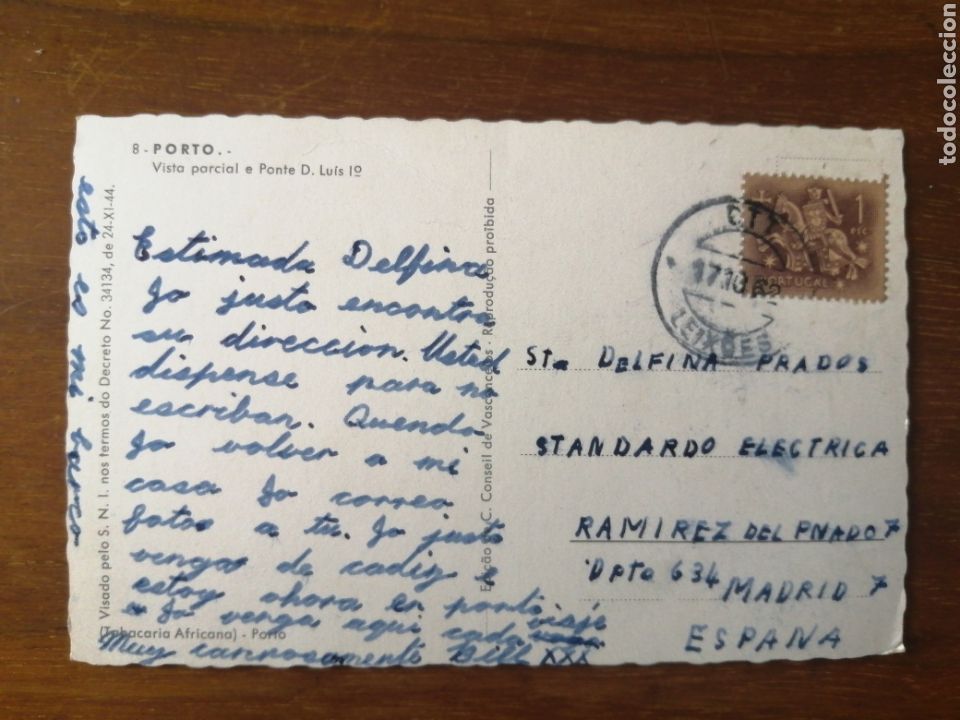 8 - PORTO. -
Vista parcial e Ponte D. Luís Iº
Estimada Delfina
Jo justo encontra
su direccion. Usted
dispense para no
escriban. Quendo
Jo volver a mi
casa Jo correo
fotos a tu. Jo justo
venga de cadiz e
estoy ahora en porto
Jo venga aqui cada viaje
Muy carinosamente Bill XXX
esto es mi barco
Visado pelo S. N. I. nos termos do Decreto No. 34134, de 24-XI-44.
(Tabacaria Africana) - Porto
Edição de C. Conseil de Vasconcelos - Reprodução proibida
CTT
17.10
LEIXÕES
1
PORTUGAL
Sta DELFINA PRADOS
STANDARDO ELECTRICA
RAMIREZ DEL PNADO 7
Dpto 634 MADRID 7
ESPANA
todocoleccion